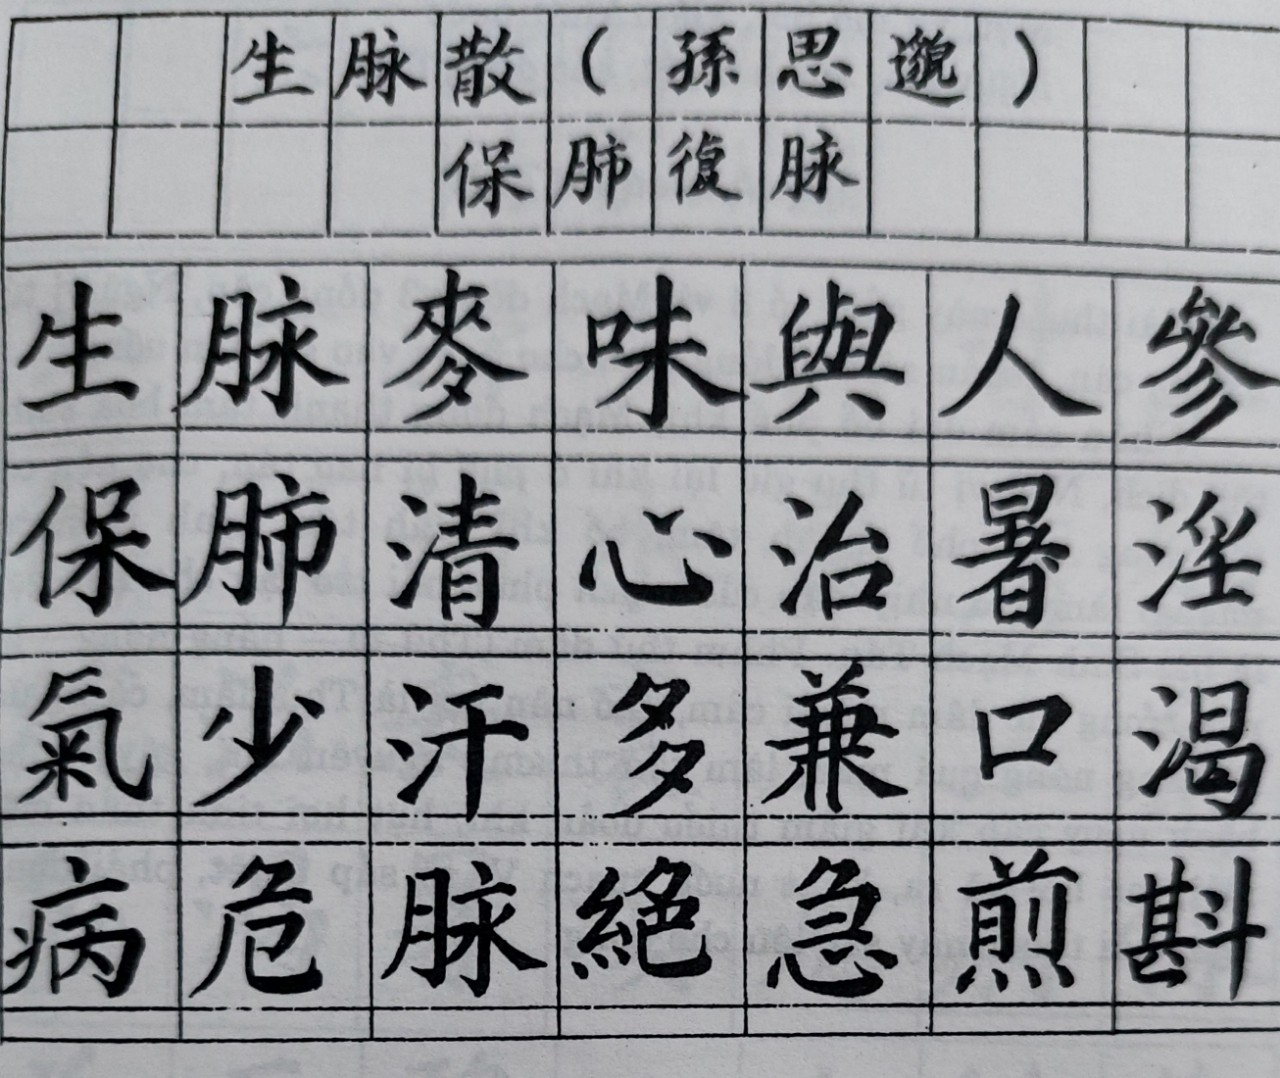 生脉散(孫思邈)
保肺復脉
生脉麥味與人參
保肺清心治暑淫
氣少汗多兼口渴
病危脉絕急煎斟